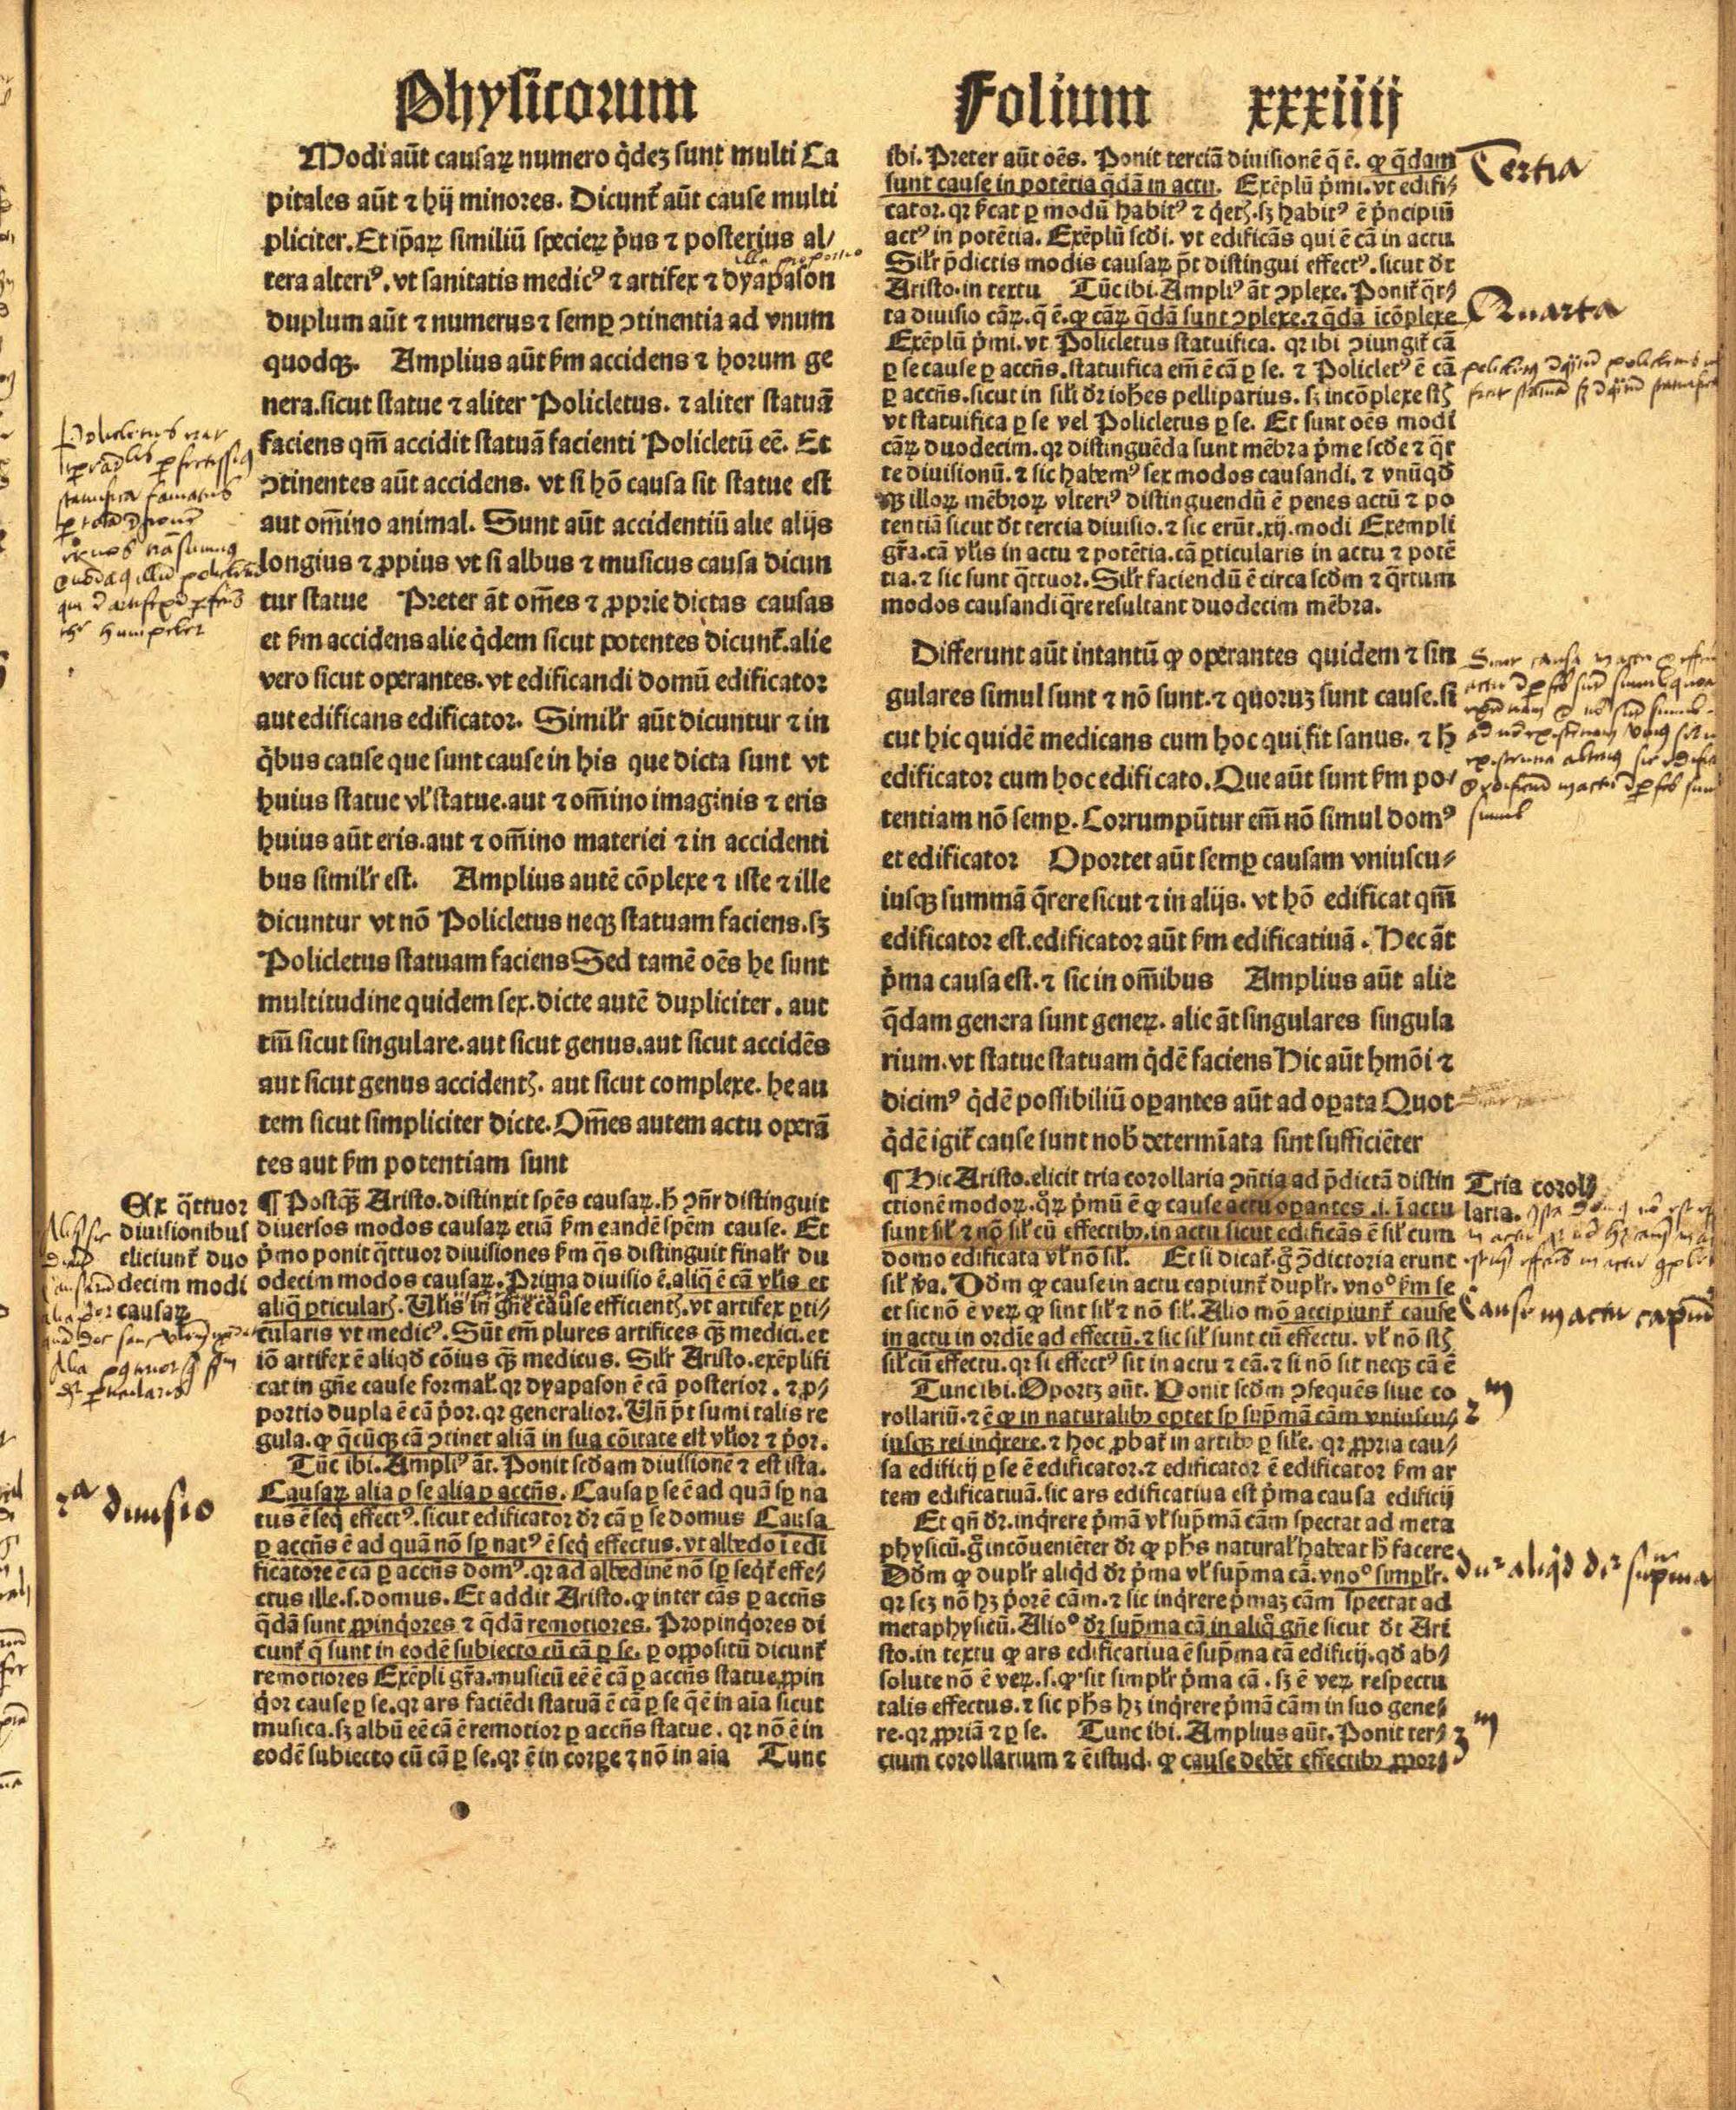 Physicorum
Folium xxxiiij
Modi aūt causaꝝ numero q̇deꝫ sunt multi Ca
pitales aūt ⁊ hij minores. Dicunt̄ aūt cause multi
pliciter. Et ip̄aꝝ similiū specieꝝ p̄us ⁊ posterius al⸗
tera alteriꝰ. vt sanitatis medicꝰ ⁊ artifex ⁊ dyapason
duplum aūt ⁊ numerus ⁊ semꝑ ꝯtinentia ad vnum
quodqꝫ. Amplius aūt ẜm accidens ⁊ horum ge
nera. sicut statue ⁊ aliter Policletus. ⁊ aliter statuā
faciens qm̄ accidit statuā facienti Policletū eē. Et
ꝯtinentes aūt accidens. vt si hō causa sit statue est
aut om̄ino animal. Sunt aūt accidentiū alie alijs
longius ⁊ ꝓpius vt si albus ⁊ musicus causa dicun
tur statue Preter āt om̄es ⁊ ꝓprie dictas causas
et ẜm accidens alie q̇dem sicut potentes dicunt̄. alie
vero sicut operantes. vt edificandi domū edificator
aut edificans edificator. Similr̄ aūt dicuntur ⁊ in
q̇bus cause que sunt cause in his que dicta sunt vt
huius statue vl̄ statue. aut ⁊ om̄ino imaginis ⁊ eris
huius aūt eris. aut ⁊ om̄ino materiei ⁊ in accidenti
bus similr̄ est. Amplius autē cōplexe ⁊ iste ⁊ ille
dicuntur vt nō Policletus neqꝫ statuam faciens. sꝫ
Policletus statuam faciens Sed tamē oēs he sunt
multitudine quidem sex. dicte autē dupliciter. aut
tm̄ sicut singulare. aut sicut genus. aut sicut accidēs
aut sicut genus accidentꝭ. aut sicut complexe. he au
tem sicut simpliciter dicte. Om̄es autem actu operā
tes aut ẜm potentiam sunt
Ex q̄ttuor
diuisionibus
eliciunt̄ duo
decim modi
causaꝝ
¶ Postqꝫ̄ Aristo. distinxit sp̄es causaꝝ. h̄ ꝯn̄r distinguit
diuersos modos causaꝝ etiā ẜm eandē sp̄em cause. Et
p̄mo ponit q̄ttuor diuisiones ẜm q̄s distinguit finalr̄ du
odecim modos causaꝝ. Prima diuisio ē. aliq̄ ē cā vl̄is et
aliq̄ ꝑticularꝭ. Vl̄is in gn̄e cause efficientꝭ. vt artifex ꝑti⸗
cularis vt medicꝰ. Sūt em̄ plures artifices qꝫ̄ medici. et
iō artifex ē aliqd̄ cōius qꝫ̄ medicus. Silr̄ Aristo. exēplifi
cat in gn̄e cause formal̄. qꝛ dyapason ē cā posterior. ⁊ ꝓ⸗
portio dupla ē cā p̄or. qꝛ generalior. Vn̄ p̄t sumi talis re
gula. ꝙ q̄cūqꝫ cā ꝯtinet aliā in sua cōitate est vl̄ior ⁊ p̄or.
Tūc ibi. Ampliꝰ āt. Ponit scd̄am diuisionē ⁊ est ista.
Causaꝝ alia ꝑ se alia ꝑ accn̄s. Causa ꝑ se ē ad quā sꝑ na
tus ē seq̇ effectꝰ. sicut edificator dr̄ cā ꝑ se domus Causa
ꝑ accn̄s ē ad quā nō sꝑ natꝰ ē seq̇ effectus. vt albedo ī edi
ficatore ē cā ꝑ accn̄s domꝰ. qꝛ ad albedinē nō sꝑ seq̇t̄ effe⸗
ctus ille. s. domus. Et addit Aristo. ꝙ inter cās ꝑ accn̄s
q̄dā sunt ꝓpinq̇ores ⁊ q̄dā remotiores. Propinq̇ores di
cunt̄ q̄ sunt in eodē subiecto cū cā ꝑ se. ꝑ oppositū dicunt̄
remotiores Exēpli gr̄a. musicū eē ē cā ꝑ accn̄s statue ꝓpin
q̇or cause ꝑ se. qꝛ ars faciēdi statuā ē cā ꝑ se q̄ ē in aīa sicut
musica. sꝫ albū eē cā ē remotior ꝑ accn̄s statue. qꝛ nō ē in
eodē subiecto cū cā ꝑ se. qꝛ ē in corꝑe ⁊ nō in aīa Tunc
2ᵃ diuisio
ibi. Preter aūt oēs. Ponit terciā diuisionē q̄ ē. ꝙ q̄dam
sunt cause in potētia q̄dā in actu. Exēplū p̄mi. vt edifi⸗
cator. qꝛ ẜcat ꝑ modū habitꝰ ⁊ q̇etꝭ. sꝫ habitꝰ ē p̄ncipiū
actꝰ in potētia. Exēplū scd̄i. vt edificās qui ē cā in actu
Silr̄ p̄dictis modis causaꝝ p̄t distingui effectꝰ. sicut dt̄
Aristo. in textu Tūc ibi. Ampliꝰ āt ꝯplexe. Ponit̄ q̄r⸗
ta diuisio cāꝝ. q̄ ē. ꝙ cāꝝ q̄dā sunt ꝯplexe. ⁊ q̄dā īcōplexe
Exēplū p̄mi. vt Policletus statuifica. qꝛ ibi ꝯiungit̄ cā
ꝑ se cause ꝑ accn̄s. statuifica em̄ ē cā ꝑ se. ⁊ Policletꝰ ē cā
ꝑ accn̄s. sicut in sil̄i dr̄ ioh̄es pelliparius. sꝫ incōplexe stꝭ
vt statuifica ꝑ se vel Policletus ꝑ se. Et sunt oēs modi
cāꝝ duodecim. qꝛ distinguēda sunt mēbra p̄me scd̄e ⁊ q̄r
te diuisionū. ⁊ sic habemꝰ sex modos causandi. ⁊ vnūqd̄
qꝫ illoꝝ mēbroꝝ vlteriꝰ distinguendū ē penes actū ⁊ po
tentiā sicut dt̄ tercia diuisio. ⁊ sic erūt. xij. modi Exempli
gr̄a. cā vl̄is in actu ⁊ potētia. cā ꝑticularis in actu ⁊ potē
tia. ⁊ sic sunt q̄ttuor. Silr̄ faciendū ē circa scd̄m ⁊ q̄rtum
modos causandi q̄re resultant duodecim mēbra.
Tertia
Quarta
Differunt aūt intantū ꝙ operantes quidem ⁊ sin
gulares simul sunt ⁊ nō sunt. ⁊ quoruꝫ sunt cause. si
cut hic quidē medicans cum hoc qui fit sanus. ⁊ h̄
edificator cum hoc edificato. Que aūt sunt ẜm po⸗
tentiam nō semꝑ. Corrumpūtur em̄ nō simul domꝰ
et edificator Oportet aūt semꝑ causam vniuscu⸗
iusqꝫ summā q̄rere sicut ⁊ in alijs. vt hō edificat qm̄
edificator est. edificator aūt ẜm edificatiuā. Hec āt
p̄ma causa est. ⁊ sic in om̄ibus Amplius aūt alie
q̄dam genera sunt geneꝝ. alie āt singulares singula
rium. vt statue statuam q̇dē faciens Hic aūt hmōi ⁊
dicimꝰ q̇dē possibiliū oꝑantes aūt ad oꝑata Quot
q̇dē igit̄ cause sunt nob̄ determīata sint sufficiēter
¶ Hic Aristo. elicit tria corollaria ꝯn̄tia ad p̄dictā distin
ctionē modoꝝ. q̄ꝝ p̄mū ē ꝙ cause actu oꝑantes .i. ī actu
sunt sil̄ ⁊ nō sil̄ cū effectibꝫ. in actu sicut edificās ē sil̄ cum
domo edificata vl̄ nō sil̄. Et si dicat̄. g̊ ꝯdictoria erunt
sil̄ v̄a. Dd̄m ꝙ cause in actu capiunt̄ duplr̄. vnoº ẜm se
et sic nō ē veꝝ ꝙ sint sil̄ ⁊ nō sil̄. Alio mō accipiunt̄ cause
in actu in ordīe ad effectū. ⁊ sic sil̄ sunt cū effectu. vl̄ nō stꝭ
sil̄ cū effectu. qꝛ si effectꝰ sit in actu ⁊ cā. ⁊ si nō sit neqꝫ cā ē
Tunc ibi. Oportꝫ aūt. Ponit scd̄m ꝯsequēs siue co
rollariū. ⁊ ē ꝙ in naturalibꝫ oꝑtet sꝑ sup̄mā cām vniuscu⸗
iusqꝫ rei inq̇rere. ⁊ hoc ꝓbat̄ in artibꝫ ꝑ sil̄e. qꝛ ꝓpria cau⸗
sa edificij ꝑ se ē edificator. ⁊ edificator ē edificator ẜm ar
tem edificatiuā. sic ars edificatiua est p̄ma causa edificij
Et qn̄ dr̄. inq̇rere p̄mā vl̄ sup̄mā cām spectat ad meta
physicū. g̊ incōueniēter dr̄ ꝙ ph̄s natural̄ habeat h̄ facere
Dd̄m ꝙ duplr̄ aliq̇d dr̄ p̄ma vl̄ sup̄ma cā. vnoº simplr̄.
qꝛ scꝫ nō hꝫ p̄orē cām. ⁊ sic inq̇rere p̄maꝫ cām spectat ad
metaphysicū. Alioº dr̄ sup̄ma cā in aliq̊ gn̄e sicut dt̄ Ari
sto. in textu ꝙ ars edificatiua ē sup̄ma cā edificij. qd̄ ab⸗
solute nō ē veꝝ. s. ꝙ sit simplr̄ p̄ma cā. sꝫ ē veꝝ respectu
talis effectus. ⁊ sic ph̄s hꝫ inq̇rere p̄mā cām in suo gene⸗
re. qꝛ ꝓpriā ⁊ ꝑ se. Tunc ibi. Amplius aūt. Ponit ter⸗
cium corollarium ⁊ ē istud. ꝙ cause debēt effectibꝫ ꝓpor⸗
Tria corol⸗
laria.
2ᵐ
3ᵐ